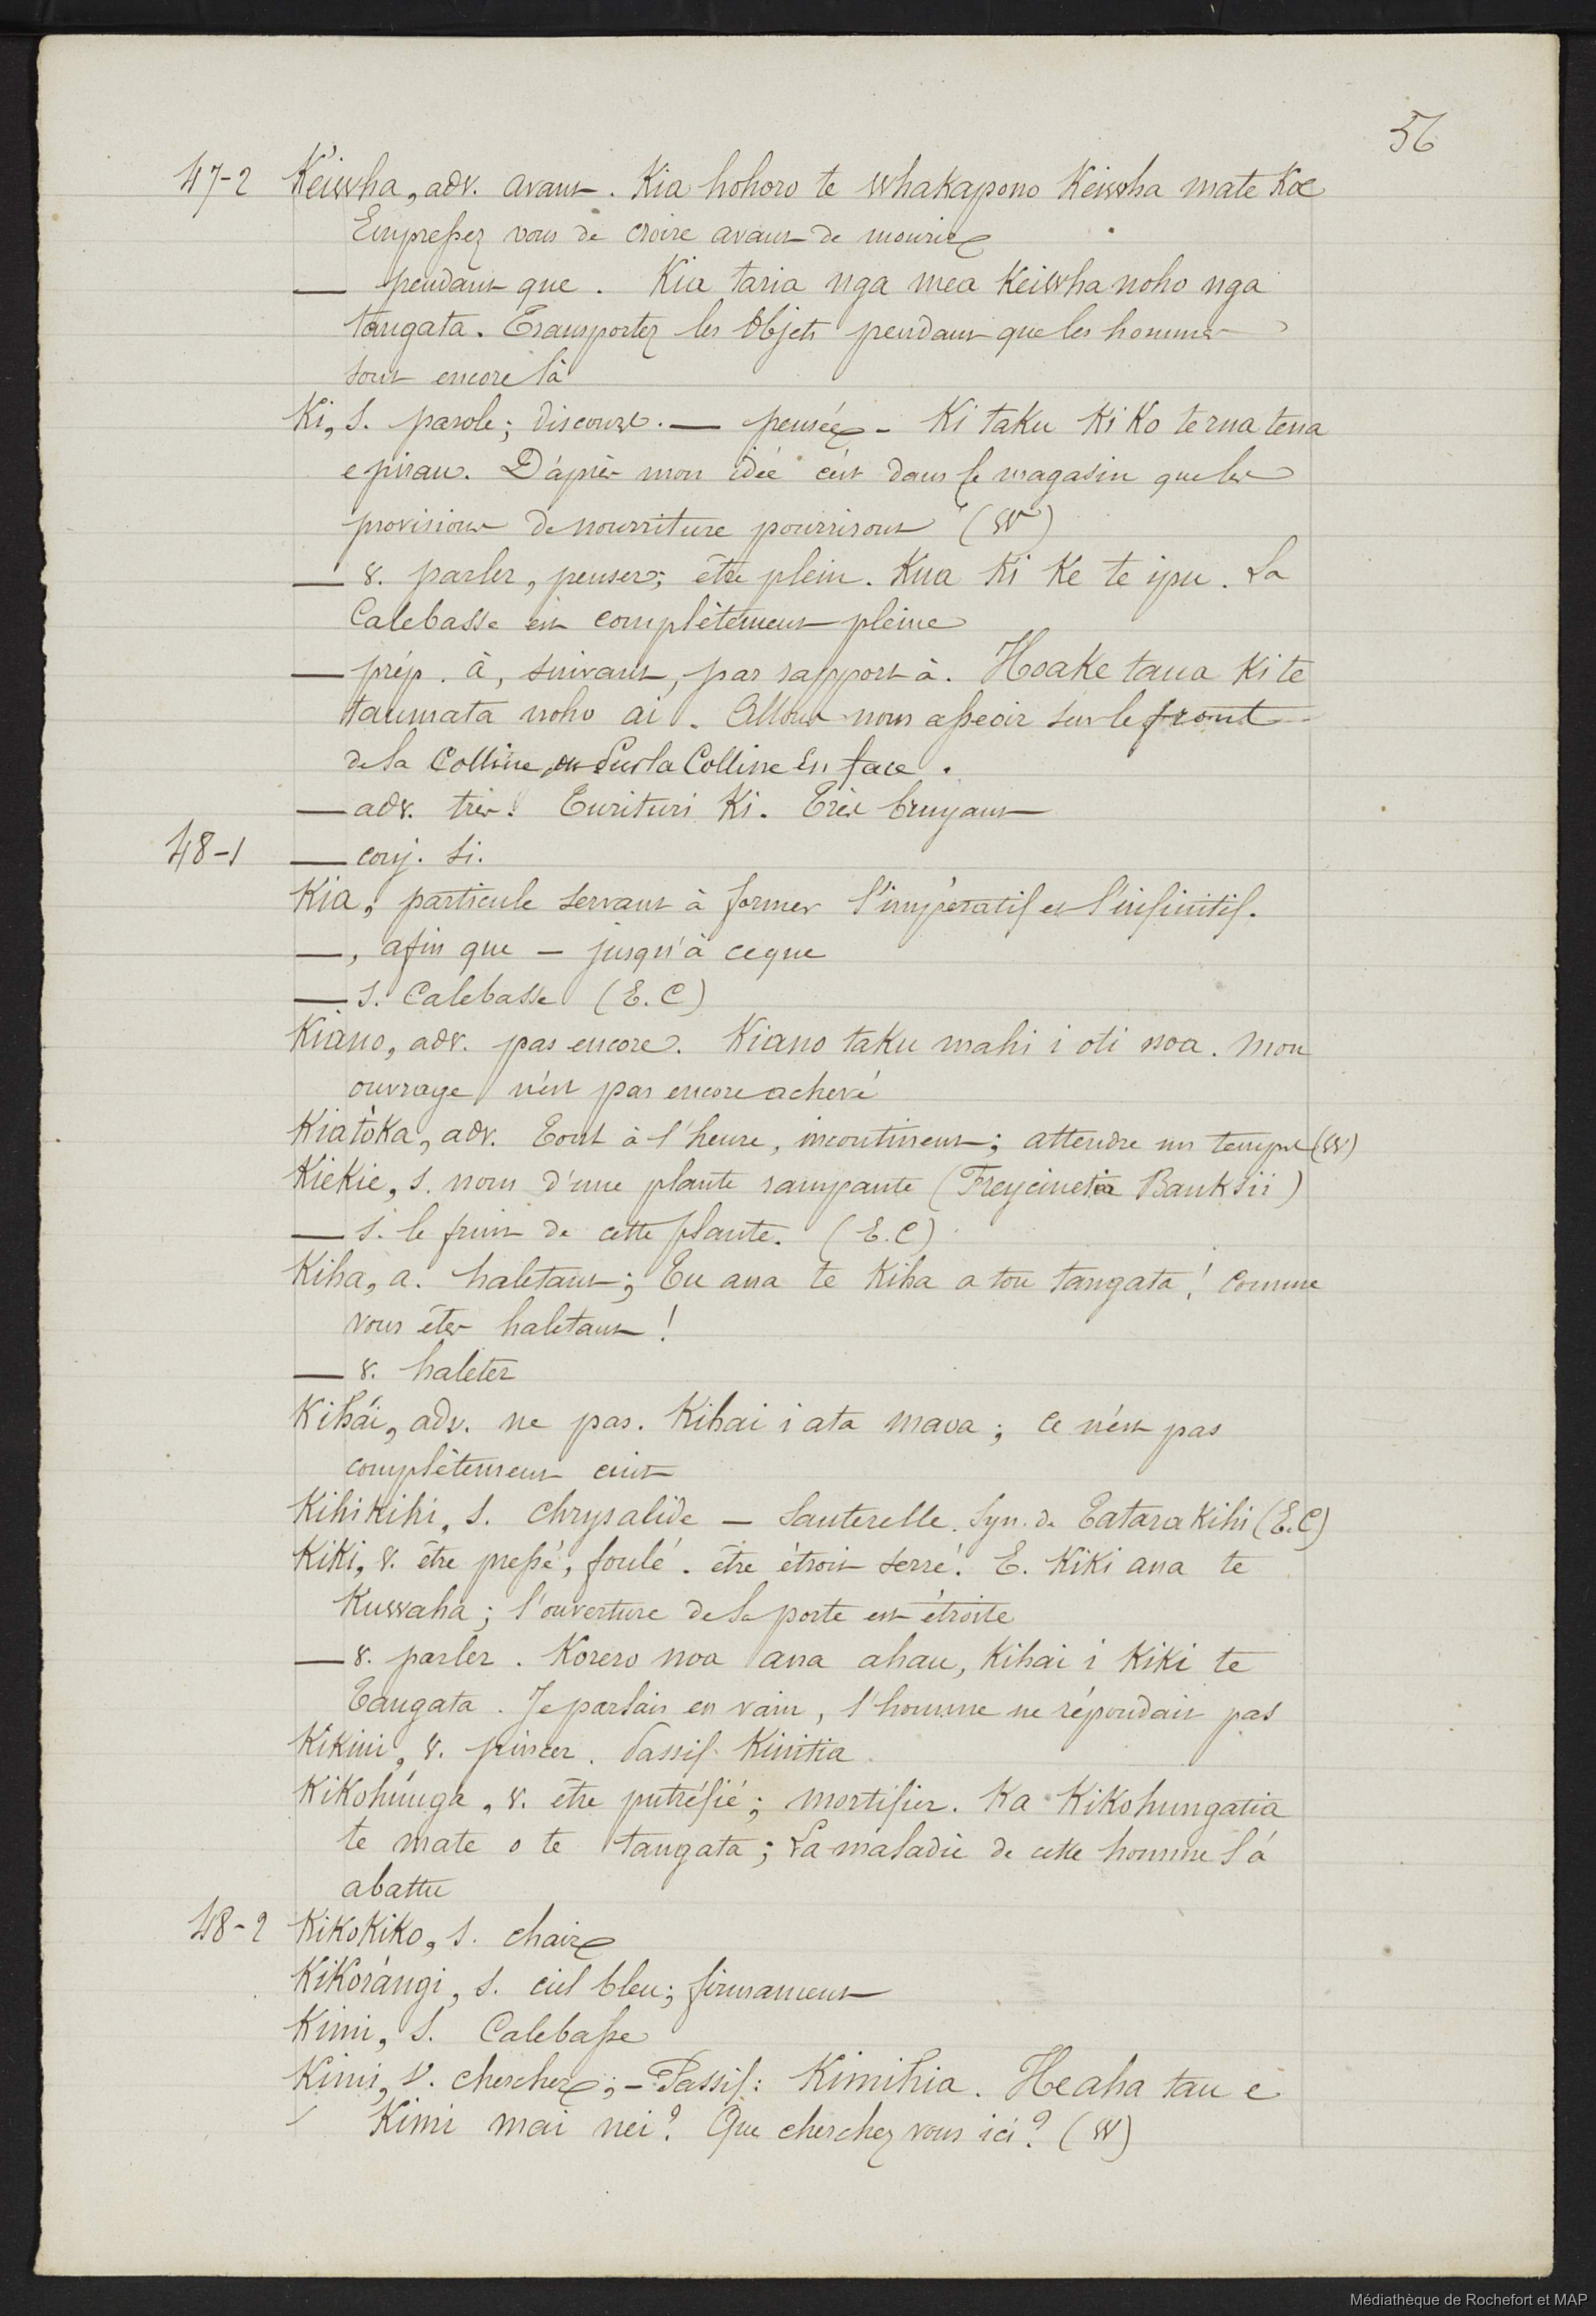 56
47-2 Kéiwha, adv. avant. Kia hohoro te whakapono Keiwha mate Koe
Empressez vous de croire avant de mourir
— pendant que. Kia taria nga mea Keiwha noho nga
tangata. Transportez les Objets pendant que les hommes
sont encore là
Ki, s. parole; discours. — pensée - Ki taku Ki Ko te rua tena
e pirau. D'après mon idée c'est dans le magasin que les
provisions de nourriture pourrisont (W)
— v. parler, penser; être plein. Kua Ki Ke te ipu. La
Calebasse est complètement pleine
— prép. à, suivant, par rapport à. Hoake taua Ki te
taumata noho ai. Allons nous asseoir sur le front
de la Colline, ou Sur la Colline En face.
— adv. très. Turituri Ki. Très bruyant
48-1 — conj. si.
Kia, particule servant à former l'impératif et l'infinitif.
—, afin que — jusqu'à ce que
— s. Calebasse (E. C)
Kiàno, adv. pas encore. Kiano taku mahi i oti noa. Mon
ouvrage n'est pas encore achevé
Kiatòka, adv. Tout à l'heure, incontinent; attendre un temps (W)
Kiekie, s. nom d'une plante rampante (Freycinetia Banksii)
— s. le fruit de cette plante. (E. C)
Kiha, a. haletant; Tu ana te Kiha a tou tangata! Comme
vous êtes haletant!
— v. haleter
Kihái, adv. ne pas. Kihai i ata maoa; ce n'est pas
complètement cuit
Kihikihi, s. chrysalide — Sauterelle. Syn. de Tatarakihi (E. C)
Kiki, v. être pressé, foulé. être étroit serré. E. Kiki ana te
Kuwaha; l'ouverture de la porte est étroite
— v. parler. Korero noa ana ahau, Kihai i Kiki te
Tangata. Je parlais en vain, l'homme ne répondait pas
Kikini, v. pincer. Passif. Kinitia
Kikohúnga, v. être putréfié; mortifier. Ka Kikohungatia
te mate o te tangata; La maladie de cette homme l'á
abattu
48-2 Kikokiko, s. chair
Kikorángi, s. ciel bleu; firmament
Kimi, s. Calebasse
Kimi, v. chercher; - Passif: Kimihia. He aha tau e
Kimi mai nei? Que cherchez vous ici? (W)
Médiathèque de Rochefort et MAP